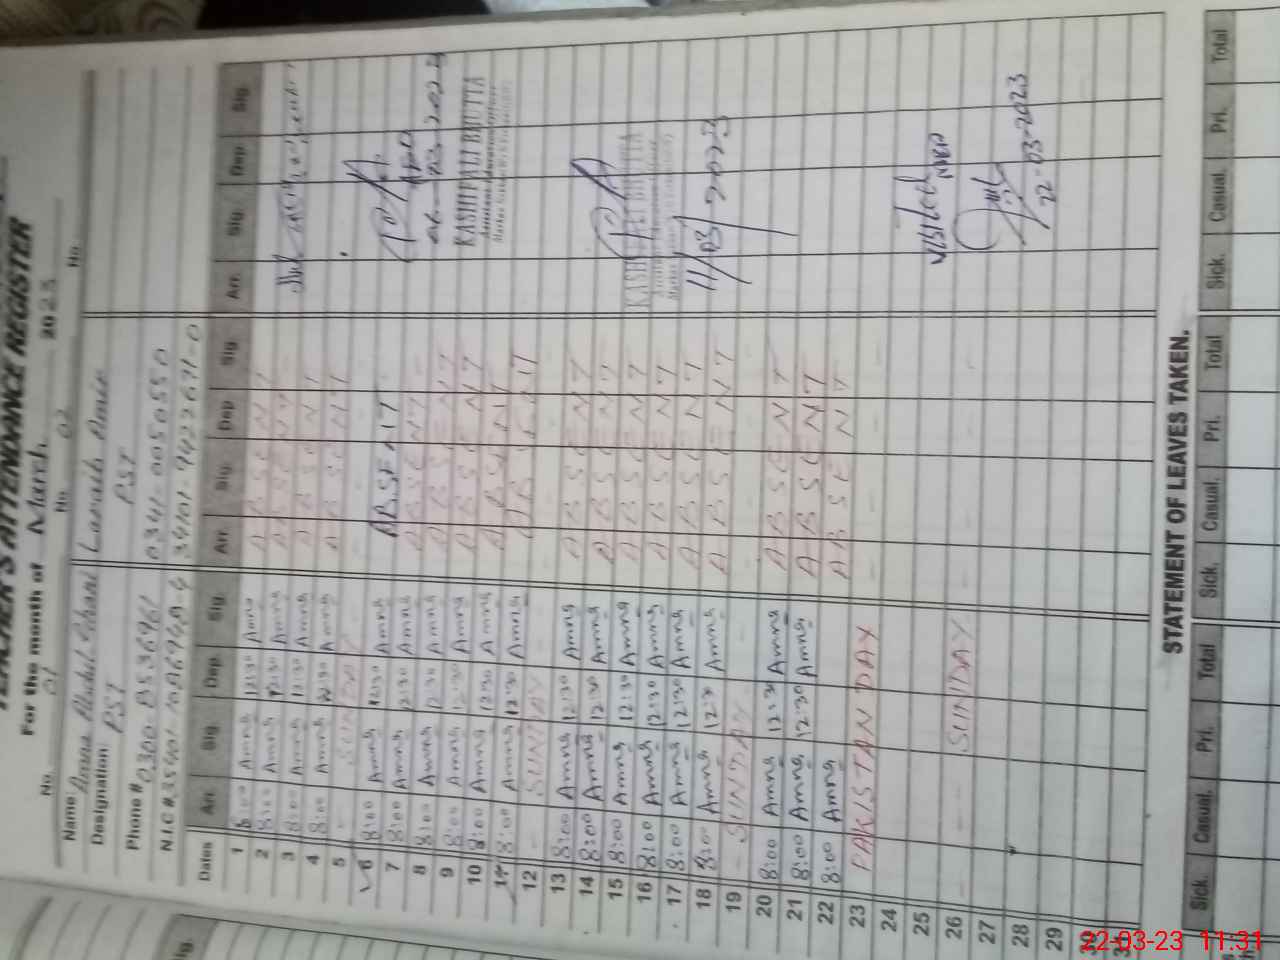 TEACHER'S ATTENDANCE REGISTER
For the month of March. 2023
No. 01 No 02 No.
Name Amna
Designation PST PST
Phone # 0300- 0341-0050550
N.I.C #
Dates Arr. Sig. Dep. Sig. Arr. Sig. Dep Sig. Arr. Sig. Dep Sig.
1 8:00 Amna 12:30 Amna ABSENT
2 8:00 Amna 12:30 Amna ABSENT
3 8:00 Amna 12:30 Amna ABSENT
4 8:00 Amna 12:30 Amna ABSENT
5 SUNDAY
6 8:00 Amna 12:30 Amna ABSENT
7 8:00 Amna 12:30 Amna ABSENT
8 8:00 Amna 12:30 Amna ABSENT
9 8:00 Amna 12:30 Amna ABSENT
10 8:00 Amna 12:30 Amna ABSENT
11 8:00 Amna 12:30 Amna ABSENT
12 SUNDAY
13 8:00 Amna 12:30 Amna ABSENT
14 8:00 Amna 12:30 Amna ABSENT
15 8:00 Amna 12:30 Amna ABSENT
16 8:00 Amna 12:30 Amna ABSENT
17 8:00 Amna 12:30 Amna ABSENT
18 8:00 Amna 12:30 Amna ABSENT
19 SUNDAY
20 8:00 Amna 12:30 Amna ABSENT
21 8:00 Amna 12:30 Amna ABSENT
22 8:00 Amna ABSENT
23 PAKISTAN DAY
24
25
26 SUNDAY
27
28
29
30
31
AEO
KASHIF ALI BHUTTA
Assistant Education Officer
KASHIF ALI BHUTTA
11/03/2023
Visited
22-03-2023
STATEMENT OF LEAVES TAKEN.
Sick. Casual. Pri. Total Sick. Casual. Pri. Total Sick. Casual. Pri. Total
22-03-23 11:31